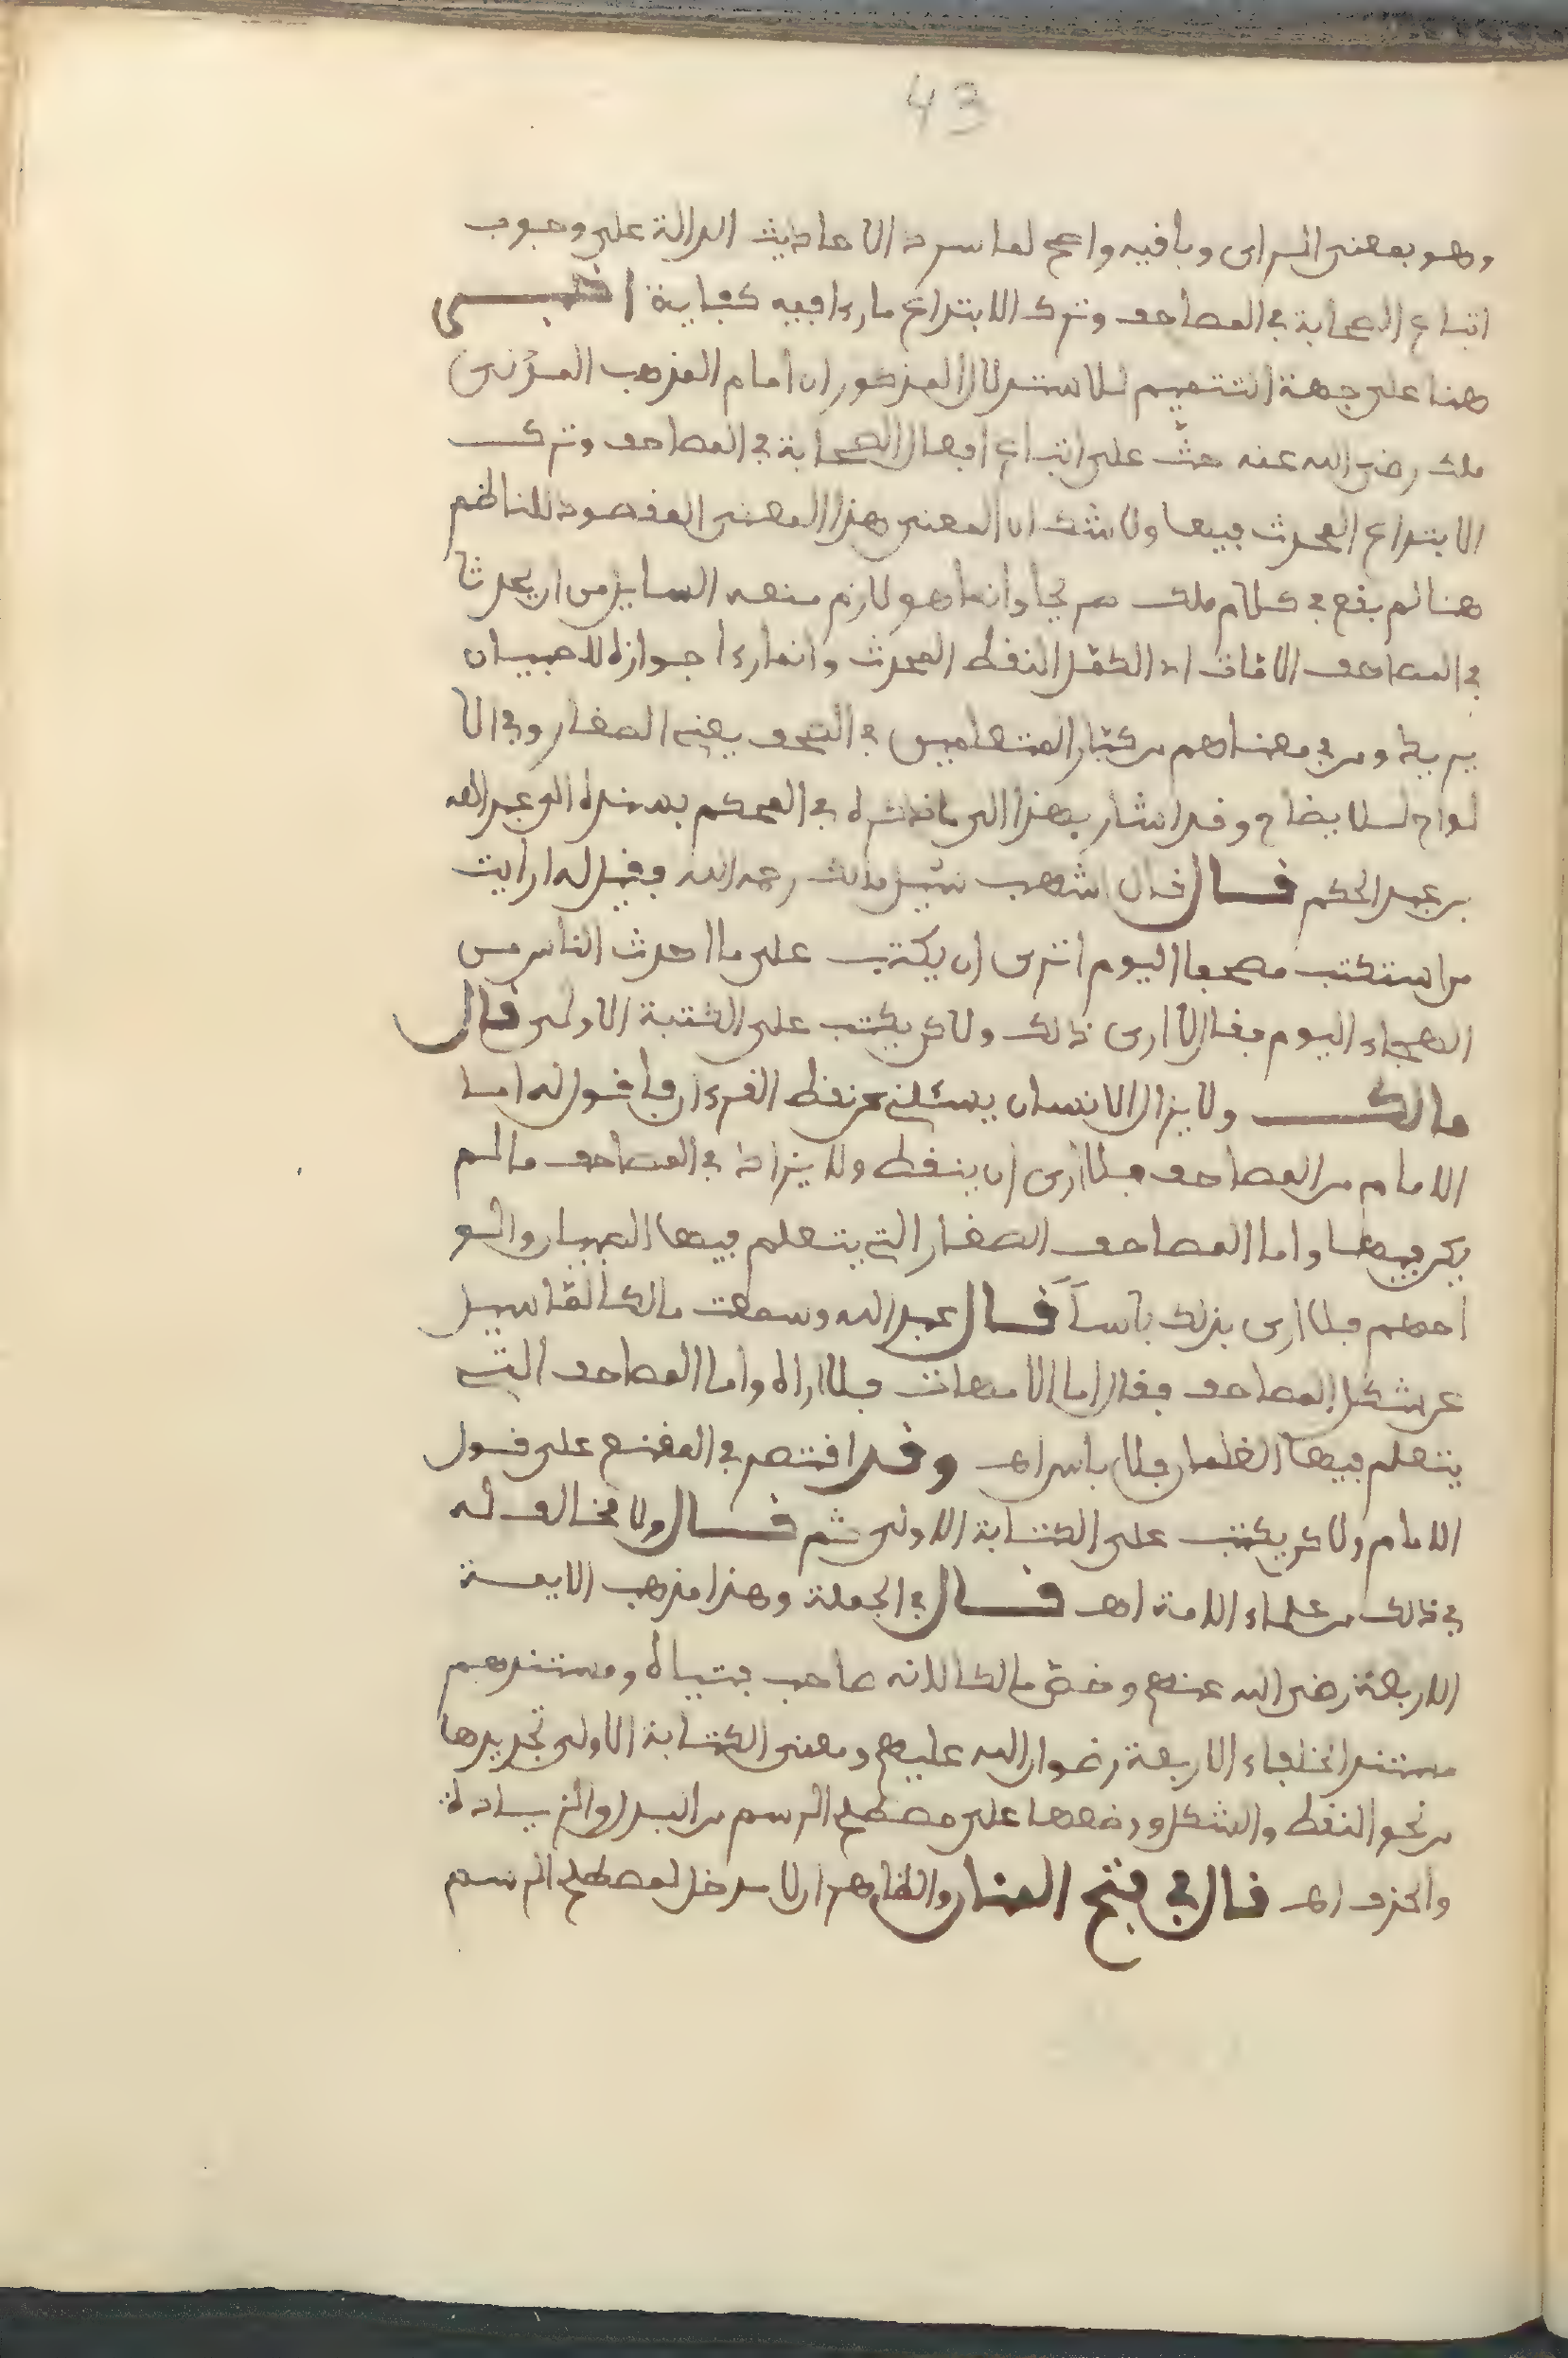 43
وهو بمعنى الرأى وباقيه واضح لما سرد الأحاديث الدالة على وجوب
اتباع الصحابة في المصاحف وترك الابتداع ما رءا فيه كفاية
هنا على جهة التتميم للاستدلال المذكور ان امام المذهب المدني
ملك رضي الله عنه حثّ على اتباع افعال الصحابة في المصاحف وترك
الابتداع المحدث فيها ولا شك ان المعنى هذا المعنى المقصود للناظم
هنا لم يقع في كلام ملك صريحا وانما هو لازم منعه السايل من ان يحدثا
في المصاحف الامات النقط المحدث وانما رءا جوازه للصبيان
يريد ومن في معناهم من كبار المتعلمين في الصحف يعني الصغار وفي الا
لواح للايضاح وقد اشار بهذا الى ما ذكره في المحكم بسنده الى عبد الله
بن عبد الحكم قال قال اشهب سئل مالك رحمه الله فقيل له ارايت
من استكتب مصحفا اليوم اترى ان يكتب على ما احدث الناس من
الهجاء اليوم فقال لا ارى ذلك ولاكن يكتب على الكتبة الاولى قال
مالك ولا يزال الانسان يسئلني عن نقط القرءان فاقول له اما
الامام من المصاحف فلا ارى ان ينقط ولا يزاد في المصاحف ما لم
يكن فيها واما المصاحف الصغار التي يتعلم فيها الصبيان والو
احهم فلا ارى بذلك بأسا قال عبد الله وسمعت مالكا لما سيل
عن شكل المصاحف فقال اما الامهات فلا اراه واما المصاحف التي
يتعلم فيها الغلمان فلا باس اهـ وقد اقتصر في المقنع على قول
الامام ولاكن يكتب على الكتابة الاولى ثم قال ولا مخالف له
في ذلك من علماء الامة اهـ قال في الجملة وهذا مذهب الايمة
الاربعة رضي الله عنهم وخص مالكا لانه صاحب فتياه ومستندهم
مستند الخلفاء الاربعة رضوان الله عليهم ومعنى الكتابة الاولى تجريدها
من نحو النقط والشكل ووضعها على مصطلح الرسم من البدل والزيادة
والحذف اهـ قال في فتح المنان والظاهر ان لا مدخل لمصطلح الرسم